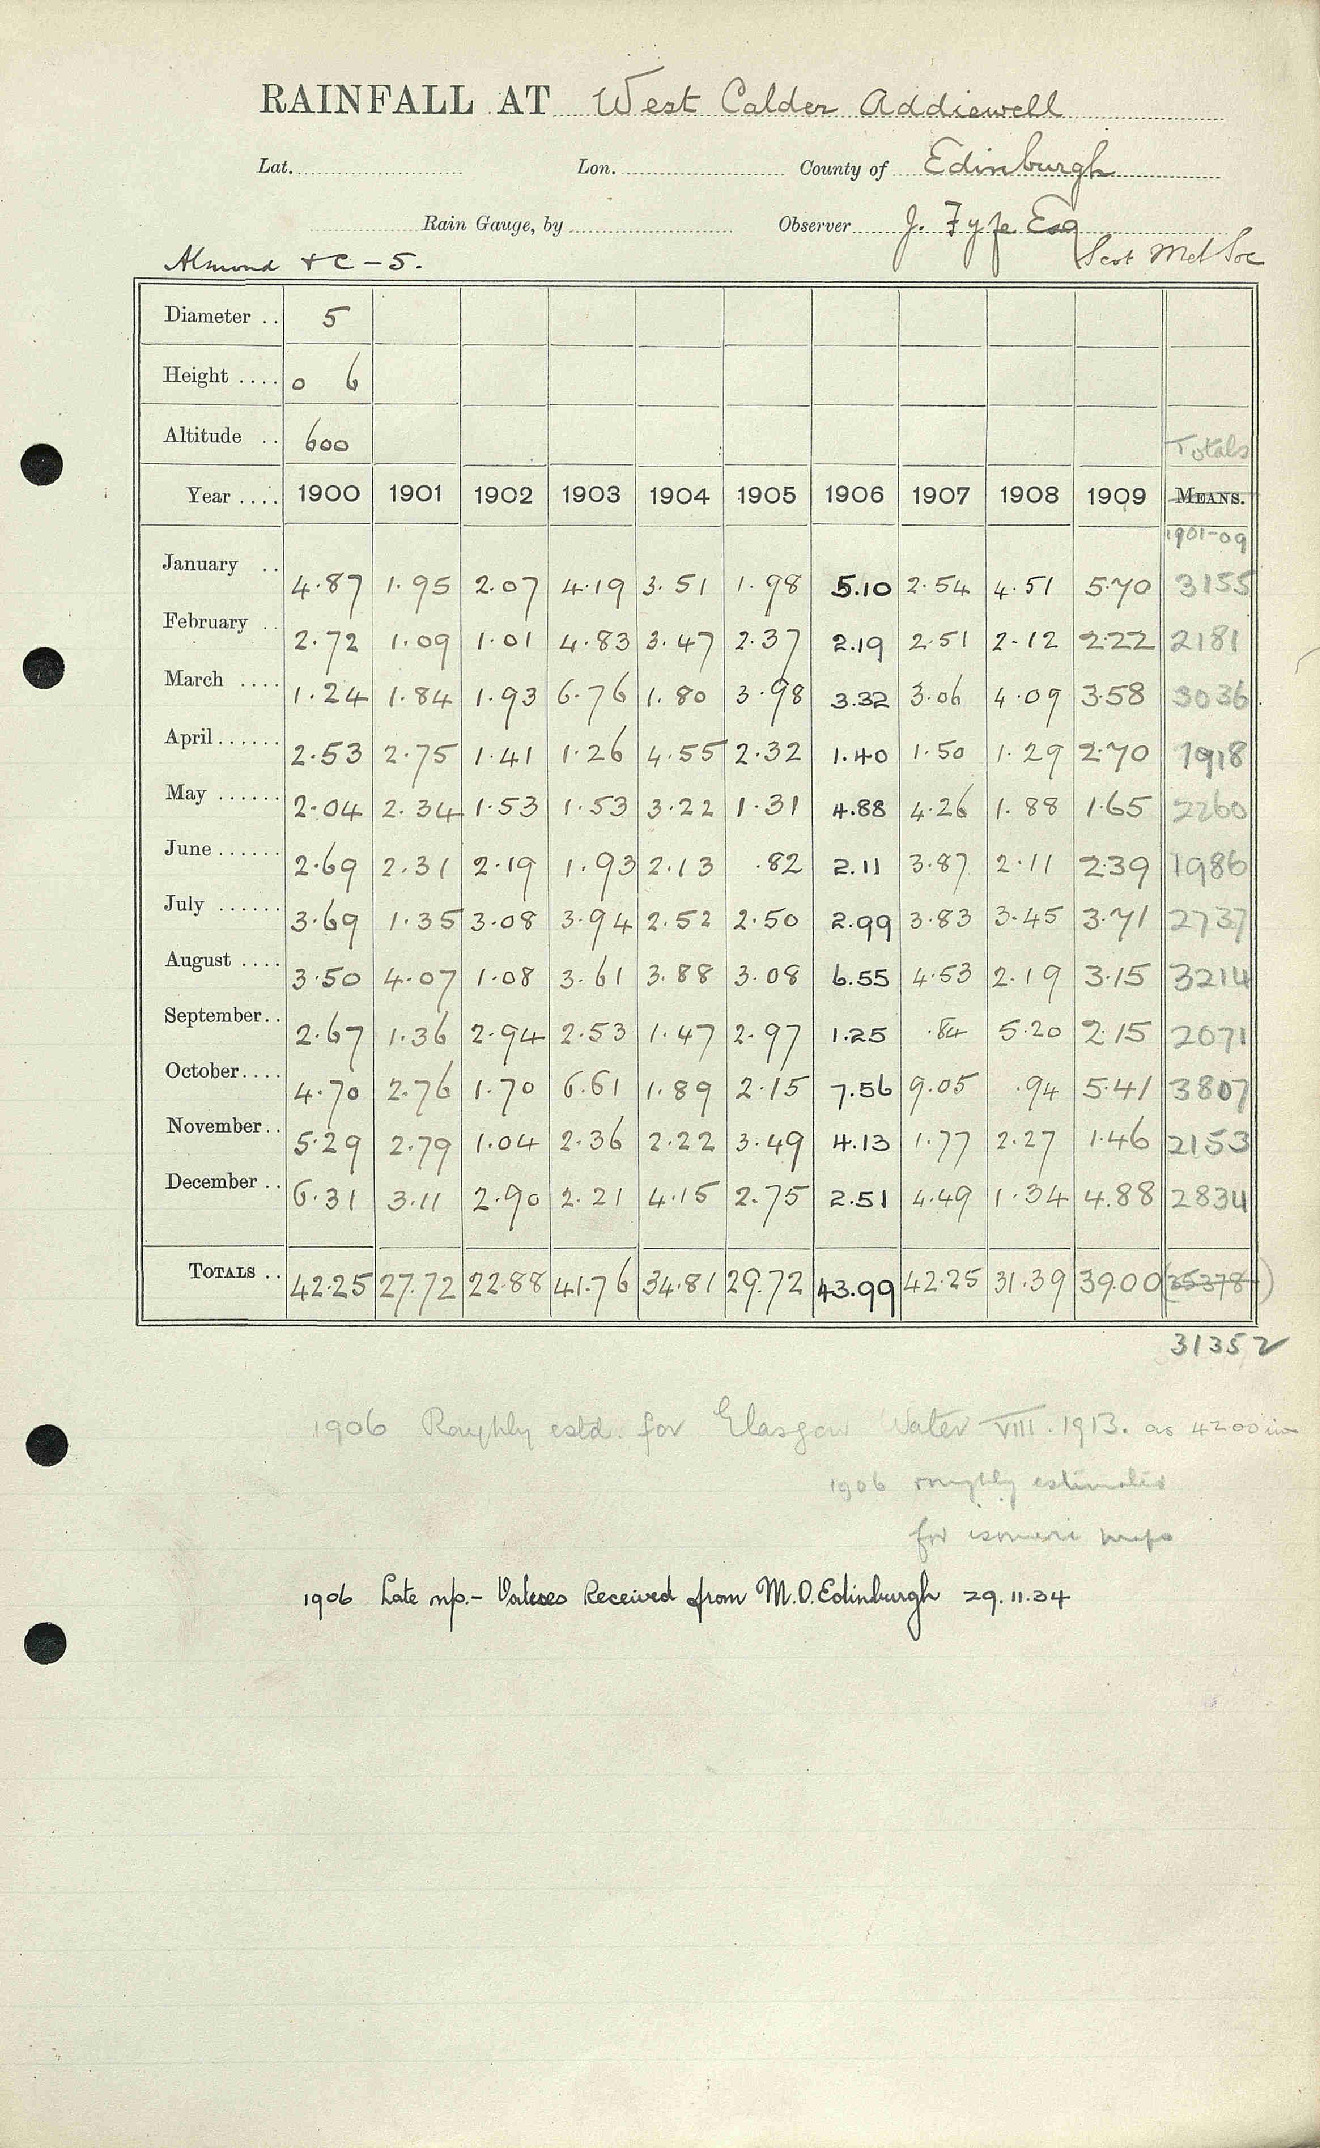 RAINFALL AT West Calder Addiewell
Lat. Lon. County of Edinburgh
Rain Gauge, by Observer J. Fyfe Esq
Almond & C - 5. Scot Met Soc
Diameter .. 5
Height .... 0 6
Altitude .. 600 Totals
Year .... 1900 1901 1902 1903 1904 1905 1906 1907 1908 1909 MEANS.
1901-09
January .. 4.87 1.95 2.07 4.19 3.51 1.98 5.10 2.54 4.51 5.70 3155
February .. 2.72 1.09 1.01 4.83 3.47 2.37 2.19 2.51 2.12 2.22 2181
March .... 1.24 1.84 1.93 6.76 1.80 3.98 3.32 3.06 4.09 3.58 3036
April...... 2.53 2.75 1.41 1.26 4.55 2.32 1.40 1.50 1.29 2.70 1918
May ...... 2.04 2.34 1.53 1.53 3.22 1.31 4.88 4.26 1.88 1.65 2260
June...... 2.69 2.31 2.19 1.93 2.13 .82 2.11 3.87 2.11 2.39 1986
July ...... 3.69 1.35 3.08 3.94 2.52 2.50 2.99 3.83 3.45 3.71 2737
August .... 3.50 4.07 1.08 3.61 3.88 3.08 6.55 4.53 2.19 3.15 3214
September.. 2.67 1.36 2.94 2.53 1.47 2.97 1.25 .84 5.20 2.15 2071
October.... 4.70 2.76 1.70 6.61 1.89 2.15 7.56 9.05 .94 5.41 3807
November.. 5.29 2.79 1.04 2.36 2.22 3.49 4.13 1.77 2.27 1.46 2153
December .. 6.31 3.11 2.90 2.21 4.15 2.75 2.51 4.49 1.34 4.88 2834
TOTALS .. 42.25 27.72 22.88 41.76 34.81 29.72 43.99 42.25 31.39 39.00 (35378)
31352
1906 Roughly estd. for Glasgow Water VIII. 1913. as 4200 in
1906 roughly estimated
for isomeric maps
1906 Late np. - Values Received from M.O. Edinburgh 29.11.34